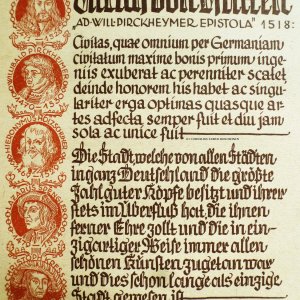 AD·WILL·PIRCKHEYMER·EPISTOLA" 1518:
Civitas, quae omnium per Germaniam
civitatum maxime bonis primum inge-
niis exuberat ac perenniter scatet,
deinde honorem his habet ac singu-
lariter erga optimas quasque ar-
tes adfecta semper fuit et diu jam
sola ac unice fuit
Die Stadt, welche von allen Städten
in ganz Deutschland die größte
Zahl guter Köpfe besitzt und ihrer
stets im Überfluß hat, die ihnen
ferner Ehre zollt und die in ein-
zigartiger Weise immer allen
schönen Künsten zugetan war
und dies schon lange als einzige
Stadt gewesen ist